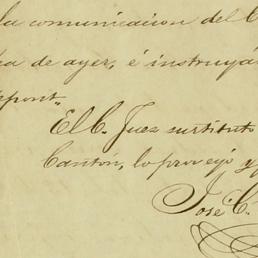 la comunicacion del C
ha de ayer, é instruyá
ppont„
El C. Juez sustituto
Cantón, lo proveyó y
José C.